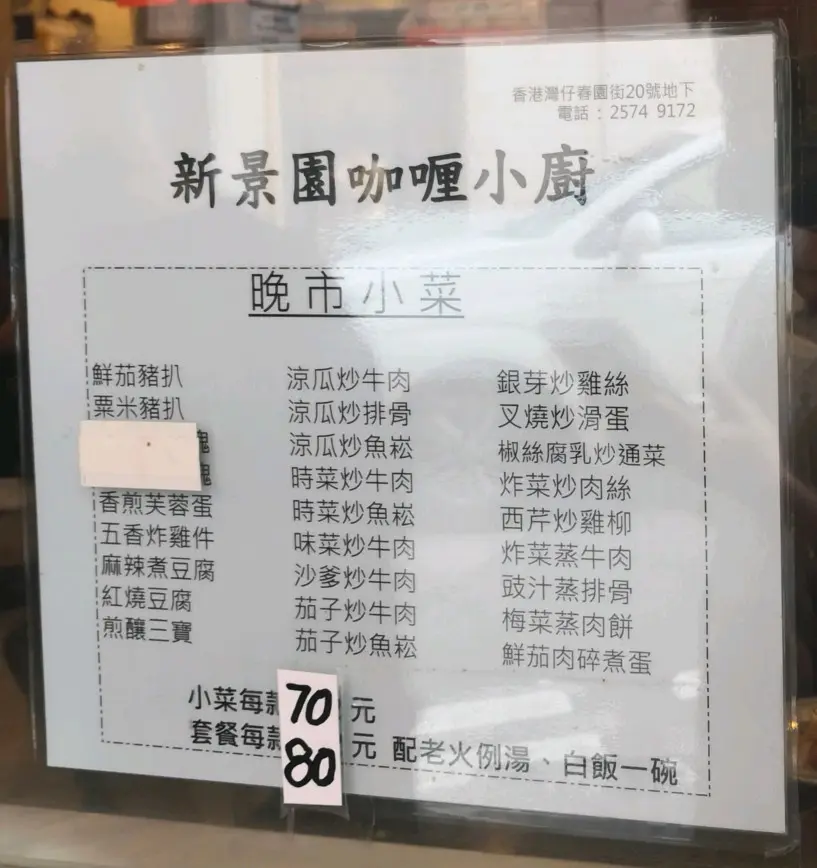 香港灣仔春園街20號地下
電話：2574 9172
新景園咖喱小廚
晚市小菜
鮮茄豬扒
粟米豬扒
塊
塊
香煎芙蓉蛋
五香炸雞件
麻辣煮豆腐
紅燒豆腐
煎釀三寶
涼瓜炒牛肉
涼瓜炒排骨
涼瓜炒魚崧
時菜炒牛肉
時菜炒魚崧
味菜炒牛肉
沙爹炒牛肉
茄子炒牛肉
茄子炒魚崧
銀芽炒雞絲
叉燒炒滑蛋
椒絲腐乳炒通菜
炸菜炒肉絲
西芹炒雞柳
炸菜蒸牛肉
豉汁蒸排骨
梅菜蒸肉餅
鮮茄肉碎煮蛋
小菜每款70元
套餐每款80元 配老火例湯、白飯一碗